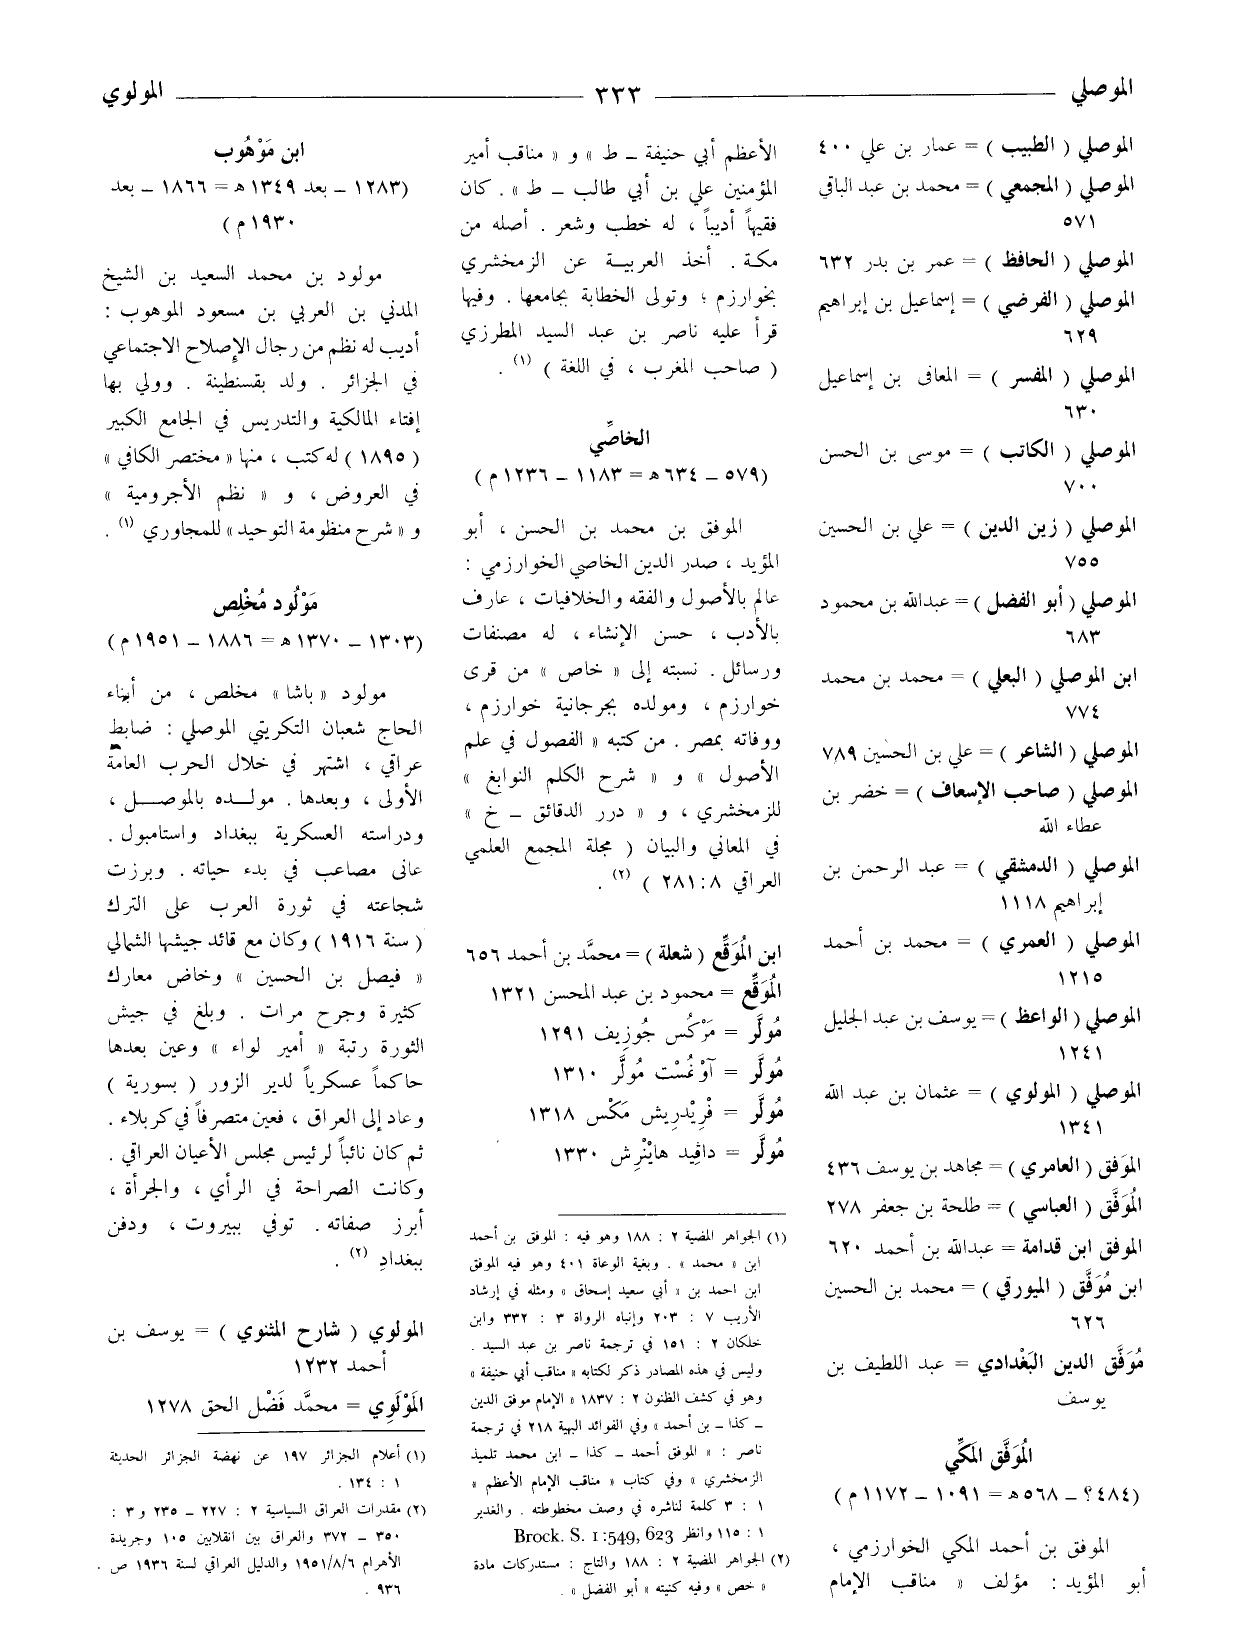 الموصلي
٣٣٣
المولوي
الموصلي ( الطبيب ) = عمار بن علي ٤٠٠
الموصلي ( المجمعي ) = محمد بن عبد الباقي
٥٧١
الموصلي ( الحافظ ) = عمر بن بدر ٦٣٢
الموصلي ( الفرضي ) = إسماعيل بن إبراهيم
٦٢٩
الموصلي ( المفسر ) = المعافى بن إسماعيل
٦٣٠
الموصلي ( الكاتب ) = موسى بن الحسن
٧٠٠
الموصلي ( زين الدين ) = علي بن الحسين
٧٥٥
الموصلي ( أبو الفضل ) = عبدالله بن محمود
٦٨٣
ابن الموصلي ( البعلي ) = محمد بن محمد
٧٧٤
الموصلي ( الشاعر ) = علي بن الحسين ٧٨٩
الموصلي ( صاحب الإسعاف ) = خضر بن
عطاء الله
الموصلي ( الدمشقي ) = عبد الرحمن بن
إبراهيم ١١١٨
الموصلي ( العمري ) = محمد بن أحمد
١٢١٥
الموصلي ( الواعظ ) = يوسف بن عبد الجليل
١٢٤١
الموصلي ( المولوي ) = عثمان بن عبد الله
١٣٤١
الموفق ( العامري ) = مجاهد بن يوسف ٤٣٦
الُموَفَّق ( العباسي ) = طلحة بن جعفر ٢٧٨
الموفق ابن قدامة = عبدالله بن أحمد ٦٢٠
ابن مُوَفَّق ( الميورقي ) = محمد بن الحسين
٦٢٦
مُوَفَّق الدين البَغْدادي = عبد اللطيف بن
يوسف
الُموَفَّق المَكِّي
(٤٨٤؟ ــ ٥٦٨ه = ١٠٩١ ــ ١١٧٢ م )
الموفق بن أحمد المكي الخوارزمي ،
أبو المؤيد : مؤلف « مناقب الإمام
الأعظم أبي حنيفة ــ ط » و « مناقب أمير
المؤمنين علي بن أبي طالب ــ ط » . كان
فقيهاً أديباً ، له خطب وشعر . أصله من
مكة . أخذ العربية عن الزمخشري
بخوارزم ؛ وتولى الخطابة بجامعها . وفيها
قرأ عليه ناصر بن عبد السيد المطرزي
( صاحب المغرب ، في اللغة ) (١) .
الخاصِّي
(٥٧٩ ــ ٦٣٤ه = ١١٨٣ ــ ١٢٣٦ م )
الموفق بن محمد بن الحسن ، أبو
المؤيد ، صدر الدين الخاصي الخوارزمي :
عالم بالأصول والفقه والخلافيات ، عارف
بالأدب ، حسن الإنشاء ، له مصنفات
ورسائل . نسبته إلى « خاص » من قرى
خوارزم ، ومولده بجرجانية خوارزم ،
ووفاته بمصر . من كتبه « الفصول في علم
الأصول » و « شرح الكلم النوابغ »
للزمخشري ، و « درر الدقائق ــ خ »
في المعاني والبيان ( مجلة المجمع العلمي
العراقي ٨ : ٢٨١ ) (٢) .
ابن الُموَقِّع ( شعلة ) = محمَّد بن أحمد ٦٥٦
الُموَقِّع = محمود بن عبد المحسن ١٣٢١
مُولَّر = مَرْكُس جُوزِيف ١٢٩١
مُولَّر = آوْغُسْت مُولَّر ١٣١٠
مُولَّر = فْرِيْدرِيش مَكْس ١٣١٨
مُولَّر = داڤِيد هايْنْرِش ١٣٣٠
(١) الجواهر المضية ٢ : ١٨٨ وهو فيه : الموفق بن أحمد
ابن « محمد » . وبغية الوعاة ٤٠١ وهو فيه الموفق
ابن احمد بن « أبي سعيد إسحاق » ومثله في إرشاد
الأريب ٧ : ٢٠٣ وإنباه الرواة ٣ : ٣٣٢ وابن
خلكان ٢ : ١٥١ في ترجمة ناصر بن عبد السيد .
وليس في هذه المصادر ذكر لكتابه « مناقب أبي حنيفة »
وهو في كشف الظنون ٢ : ١٨٣٧ « الإمام موفق الدين
ــ كذا ــ بن أحمد » وفي الفوائد البهية ٢١٨ في ترجمة
ناصر : « الموفق أحمد ــ كذا ــ ابن محمد تلميذ
الزمخشري » وفي كتاب « مناقب الإمام الأعظم »
١ : ٣ كلمة لناشره في وصف مخطوطته . والغدير
١ : ١١٥ وانظر Brock. S. 1:549, 623
(٢) الجواهر المضية ٢ : ١٨٨ والتاج : مستدركات مادة
« خص » وفيه كنيته « أبو الفضل » .
ابن مَوْهُوب
(١٢٨٣ ــ بعد ١٣٤٩ ه = ١٨٦٦ ــ بعد
١٩٣٠ م )
مولود بن محمد السعيد بن الشيخ
المدني بن العربي بن مسعود الموهوب :
أديب له نظم من رجال الإصلاح الاجتماعي
في الجزائر . ولد بقسنطينة . وولي بها
إفتاء المالكية والتدريس في الجامع الكبير
( ١٨٩٥ ) له كتب ، منها « مختصر الكافي »
في العروض ، و « نظم الأجرومية »
و « شرح منظومة التوحيد » للمجاوري (١) .
مَوْلُود مُخْلِص
(١٣٠٣ ــ ١٣٧٠ ه = ١٨٨٦ ــ ١٩٥١ م )
مولود « باشا » مخلص ، من أبناء
الحاج شعبان التكريتي الموصلي : ضابط
عراقي ، اشتهر في خلال الحرب العامة
الأولى ، وبعدها . مولده بالموصل ،
ودراسته العسكرية ببغداد واستامبول .
عانى مصاعب في بدء حياته . وبرزت
شجاعته في ثورة العرب على الترك
( سنة ١٩١٦ ) وكان مع قائد جيشها الشمالي
« فيصل بن الحسين » وخاض معارك
كثيرة وجرح مرات . وبلغ في جيش
الثورة رتبة « أمير لواء » وعين بعدها
حاكماً عسكرياً لدير الزور ( بسورية )
وعاد إلى العراق ، فعين متصرفاً في كربلاء .
ثم كان نائباً لرئيس مجلس الأعيان العراقي .
وكانت الصراحة في الرأي ، والجرأة ،
أبرز صفاته . توفي ببيروت ، ودفن
ببغداد (٢) .
المولوي ( شارح المثنوي ) = يوسف بن
أحمد ١٢٣٢
المَوْلَوِي = محمَّد فَضْل الحق ١٢٧٨
(١) أعلام الجزائر ١٩٧ عن نهضة الجزائر الحديثة
١ : ١٣٤ .
(٢) مقدرات العراق السياسية ٢ : ٢٢٧ ــ ٢٣٥ و ٣ :
٣٥٠ ــ ٣٧٢ والعراق بين انقلابين ١٠٥ وجريدة
الأهرام ١٩٥١/٨/٦ والدليل العراقي لسنة ١٩٣٦ ص
٩٣٦ .